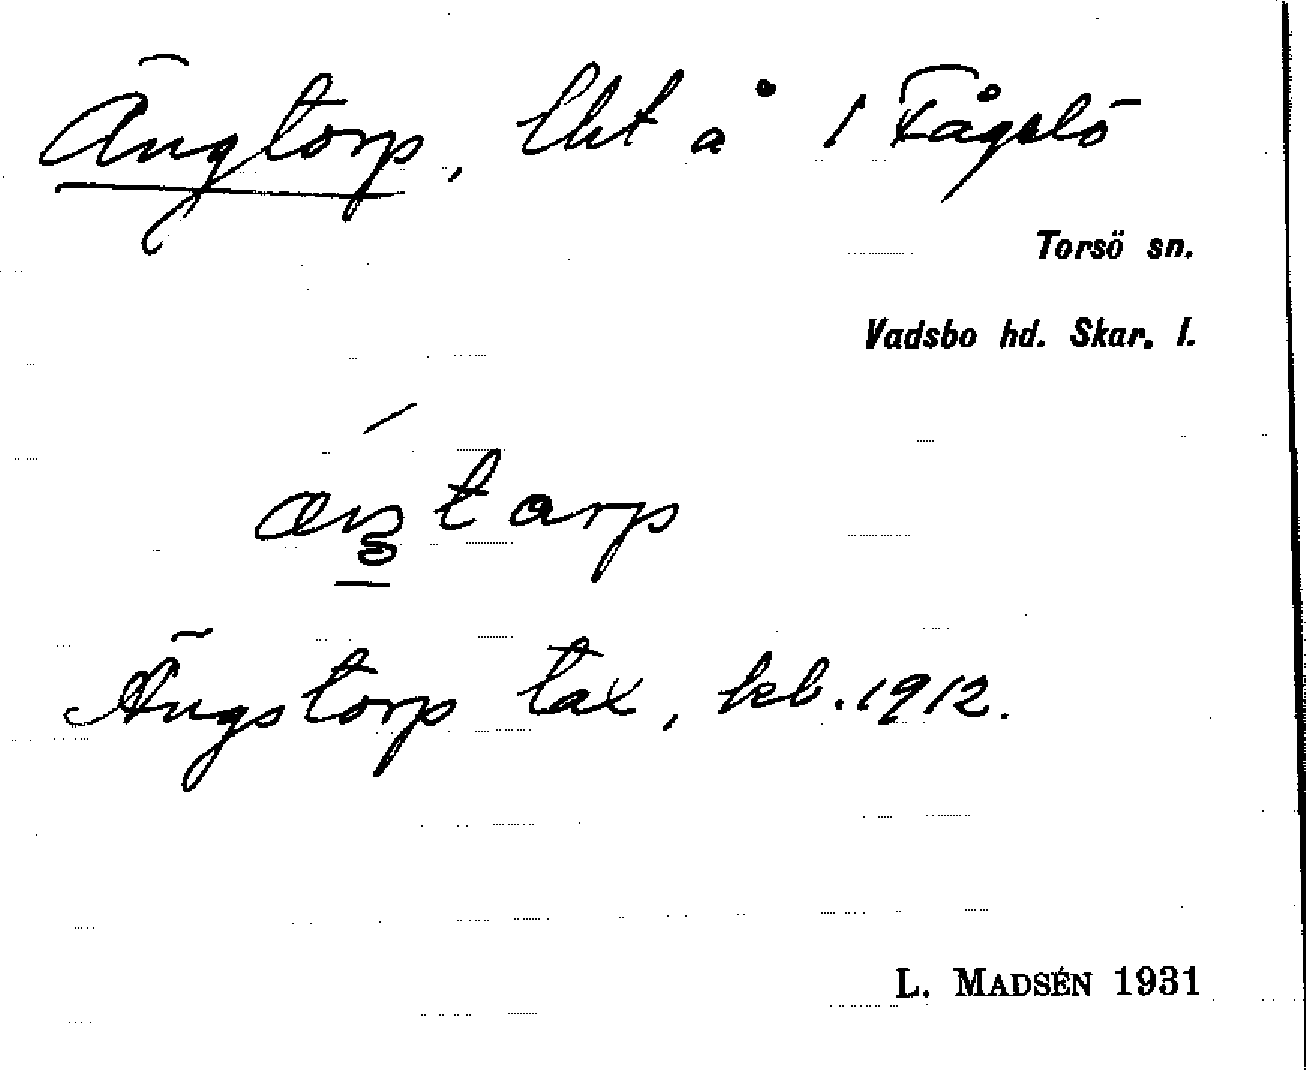 Ängtorp, lht å 1 Fågelö
Torsö sn.
Vadsbo hd. Skar. l.
Ängstorp tax, kb. 1912.
L. MADSÉN 1931